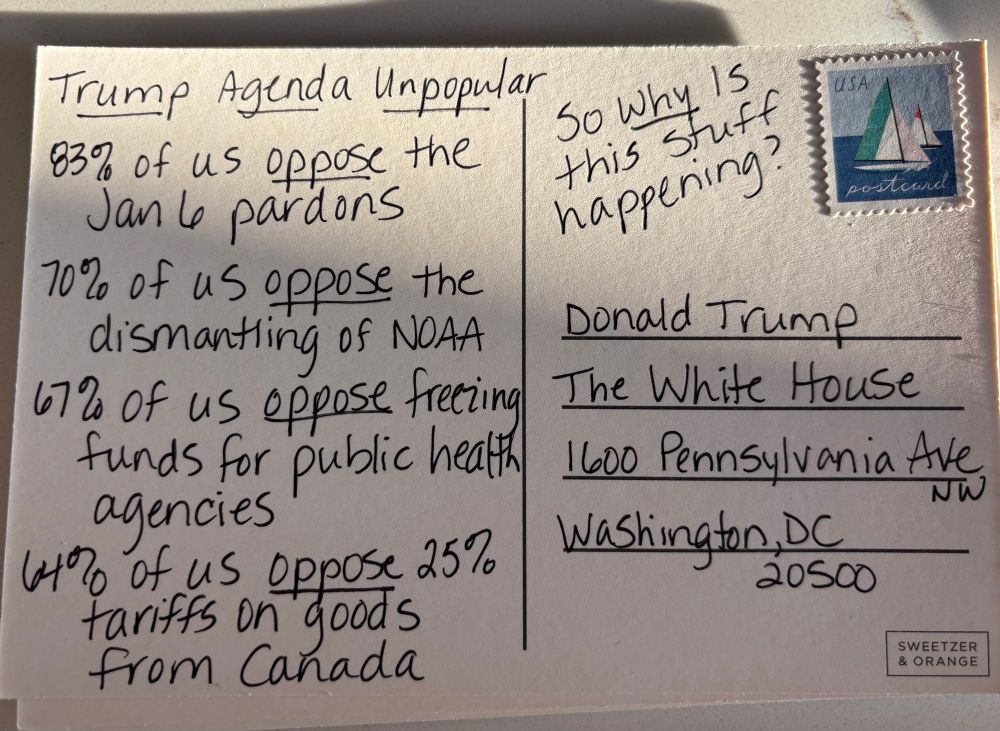 Trump Agenda Unpopular
83% of us oppose the
Jan 6 pardons
70% of us oppose the
dismantling of NOAA
67% of us oppose freezing
funds for public health
agencies
64% of us oppose 25%
tariffs on goods
from Canada
So Why Is
this stuff
happening?
USA
postcard
Donald Trump
The White House
1600 Pennsylvania Ave
NW
Washington, DC
20500
SWEETZER
& ORANGE